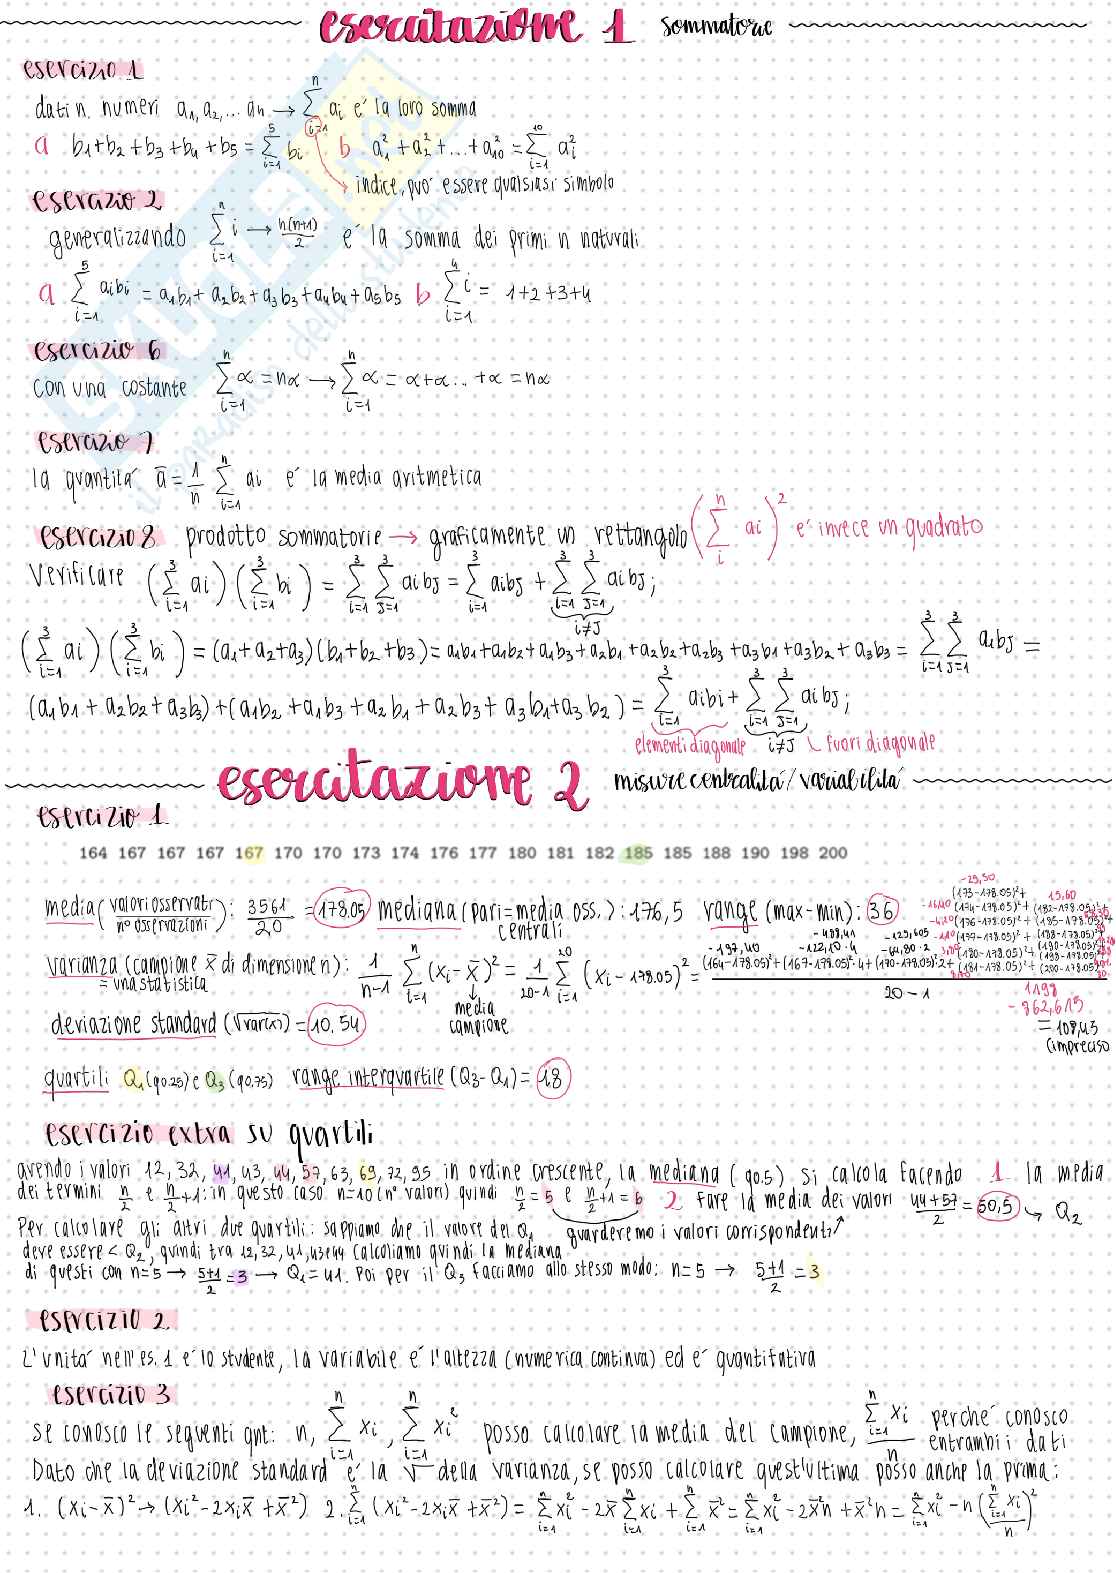 esercitazione 1 sommatorie
esercizio 1
dati n numeri a₁, a₂, ... aₙ → ∑ᵢ₌₁ⁿ aᵢ e' la loro somma
a b₁+b₂+b₃+b₄+b₅ = ∑ᵢ₌₁⁵ bᵢ b a₁²+a₂²+...+a₁₀² = ∑ᵢ₌₁¹⁰ aᵢ²
indice, può essere qualsiasi simbolo
esercizio 2
generalizzando ∑ᵢ₌₁ⁿ i → n(n+1)/2 e' la somma dei primi n naturali
a ∑ᵢ₌₁⁵ aᵢbᵢ = a₁b₁+a₂b₂+a₃b₃+a₄b₄+a₅b₅ b ∑ᵢ₌₁⁴ i = 1+2+3+4
esercizio 6
con una costante ∑ᵢ₌₁ⁿ α = nα → ∑ᵢ₌₁ⁿ α = α+α...+α = nα
esercizio 7
la quantita' a̅ = 1/n ∑ᵢ₌₁ⁿ aᵢ e' la media aritmetica
esercizio 8 prodotto sommatorie → graficamente un rettangolo (∑ᵢⁿ aᵢ)² e' invece un quadrato
verificare (∑ᵢ₌₁³ aᵢ)(∑ᵢ₌₁³ bᵢ) = ∑ᵢ₌₁³ ∑ⱼ₌₁³ aᵢbⱼ = ∑ᵢ₌₁³ aᵢbⱼ + ∑ᵢ₌₁³ ∑ⱼ₌₁³ aᵢbⱼ;
i≠J
(∑ᵢ₌₁³ aᵢ)(∑ᵢ₌₁³ bᵢ) = (a₁+a₂+a₃)(b₁+b₂+b₃) = a₁b₁+a₁b₂+a₁b₃+a₂b₁+a₂b₂+a₂b₃+a₃b₁+a₃b₂+a₃b₃ = ∑ᵢ₌₁³ ∑ⱼ₌₁³ aᵢbⱼ =
(a₁b₁+a₂b₂+a₃b₃)+(a₁b₂+a₁b₃+a₂b₁+a₂b₃+a₃b₁+a₃b₂) = ∑ᵢ₌₁³ aᵢbᵢ + ∑ᵢ₌₁³ ∑ⱼ₌₁³ aᵢbⱼ;
elementi diagonale i≠J fuori diagonale
esercitazione 2 misure centralita'/variabilita'
esercizio 1
164 167 167 167 167 170 170 173 174 176 177 180 181 182 185 185 188 190 198 200
media (valori osservati/n° osservazioni): 3561/20 = 178.05 mediana (pari=media oss. centrali): 176,5 range (max-min): 36
varianza (campione x̅ di dimensione n): 1/n-1 ∑ᵢ₌₁ⁿ (xᵢ-x̅)² = 1/20-1 ∑ᵢ₌₁²⁰ (xᵢ-178.05)² = (164-178.05)²+(167-178.05)²·4+(170-178.05)²·2+
= una statistica
media campione
20-1
1198
- 862,615
= 108,43
(impreciso
deviazione standard (√var(x)) = 10,54
quartili Q₁ (q0.25) e Q₃ (q0,75) range interquartile (Q₃-Q₁) = 18
esercizio extra su quartili
avendo i valori 12, 32, 41, 43, 44, 57, 63, 69, 72, 95 in ordine crescente, la mediana (q0.5) si calcola facendo 1. la media
dei termini n/2 e n/2+1: in questo caso n=10 (n° valori) quindi n/2 = 5 e n/2+1 = 6 2 fare la media dei valori 44+57/2 = 50,5 → Q₂
Per calcolare gli altri due quartili: sappiamo che il valore del Q₁ guarderemo i valori corrispondenti
deve essere < Q₂, quindi tra 12, 32, 41, 43 e 44 calcoliamo quindi la mediana
di questi con n=5 → 5+1/2 = 3 → Q₁=41. Poi per il Q₃ facciamo allo stesso modo: n=5 → 5+1/2 = 3
esercizio 2.
L'unita' nell'es. 1 e' lo studente, la variabile e' l'altezza (numerica continua) ed e' quantitativa
esercizio 3
se conosco le seguenti qnt: n, ∑ᵢ₌₁ⁿ xᵢ, ∑ᵢ₌₁ⁿ xᵢ² posso calcolare la media del campione, ∑ᵢ₌₁ⁿ xᵢ/n perche' conosco entrambi i dati
Dato che la deviazione standard e' la √ della varianza, se posso calcolare quest'ultima posso anche la prima:
1. (xᵢ-x̅)² → (xᵢ²-2xᵢx̅+x̅²) 2. ∑ᵢ₌₁ⁿ (xᵢ²-2xᵢx̅+x̅²) = ∑ᵢ₌₁ⁿ xᵢ² - 2x̅ ∑ᵢ₌₁ⁿ xᵢ + ∑ᵢ₌₁ⁿ x̅² = ∑ᵢ₌₁ⁿ xᵢ² - 2x̅²n + x̅²n = ∑ᵢ₌₁ⁿ xᵢ² - n(∑ᵢ₌₁ⁿ xᵢ/n)²